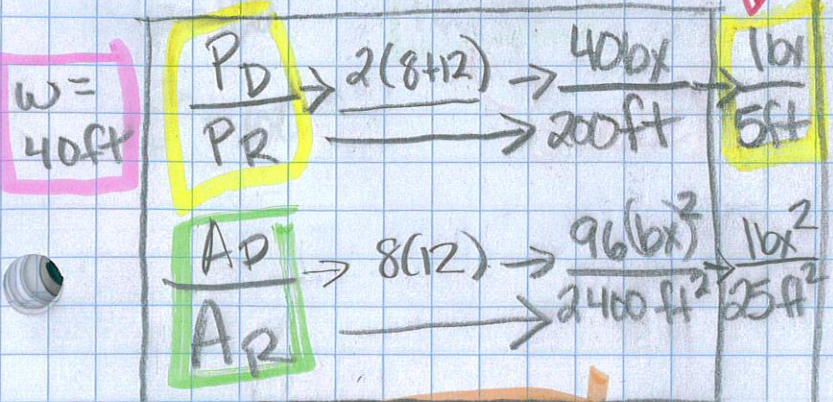 w=
40ft
P_D
P_R
2(8+12)
40bx
200ft
1bx
5ft
A_D
A_R
8(12)
96(bx)²
2400ft²
1bx²
25ft²